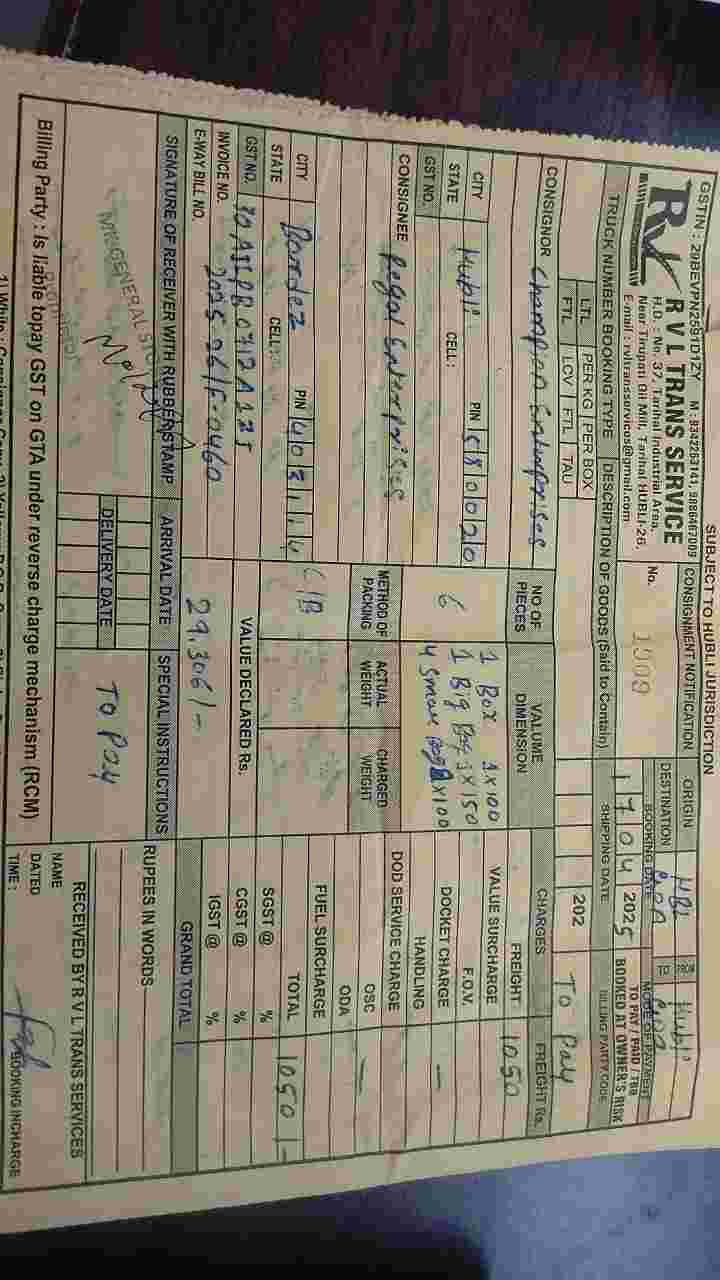 SUBJECT TO HUBLI JURISDICTION
GSTIN : 29BEVPN2591D1ZY M : 9342263141, 9886467009
R V L TRANS SERVICE
H.O. : No. 37, Tarihal Industrial Area,
Near Tirupati Oil Mill, Tarihal HUBLI-26.
E-mail : rvltransservices@gmail.com
CONSIGNMENT NOTIFICATION
No. 1909
ORIGIN HBL FROM Hubli
DESTINATION GOA TO GOA
TRUCK NUMBER BOOKING TYPE DESCRIPTION OF GOODS (Said to Contain)
BOOKING DATE 17 04 2025
MODE OF PAYMENT
TO PAY / PAID / TBB
BOOKED AT OWNER'S RISK
LTL PER KG PER BOX
FTL LCV FTL TAU
SHIPPING DATE 202
BILLING PARTY CODE To Pay
CONSIGNOR Champion Enterprises
CITY Hubli PIN 580020
STATE CELL :
GST NO.
CONSIGNEE Regal Enterprises
CITY Bardez PIN 403114
STATE CELL :
GST NO. 30ASSPB0712A1ZJ
INVOICE NO. 2025-26/F-0460
E-WAY BILL NO.
NO OF PIECES VALUME DIMENSION
6
1 Box 1x100
1 Big Bag 1x150
4 Small bag x100
METHOD OF PACKING ACTUAL WEIGHT CHARGED WEIGHT
C/B
VALUE DECLARED Rs.
29,306/-
CHARGES FREIGHT Rs.
FREIGHT 1050
VALUE SURCHARGE
F.O.V.
DOCKET CHARGE —
HANDLING
DOD SERVICE CHARGE
OSC —
ODA
FUEL SURCHARGE
TOTAL 1050/-
SGST @ %
CGST @ %
IGST @ %
GRAND TOTAL
SIGNATURE OF RECEIVER WITH RUBBER STAMP ARRIVAL DATE SPECIAL INSTRUCTIONS
DELIVERY DATE TO Pay
RUPEES IN WORDS
GENERAL
RECEIVED BY R V L TRANS SERVICES
NAME
DATED
TIME : BOOKING INCHARGE
Billing Party : Is liable topay GST on GTA under reverse charge mechanism (RCM)